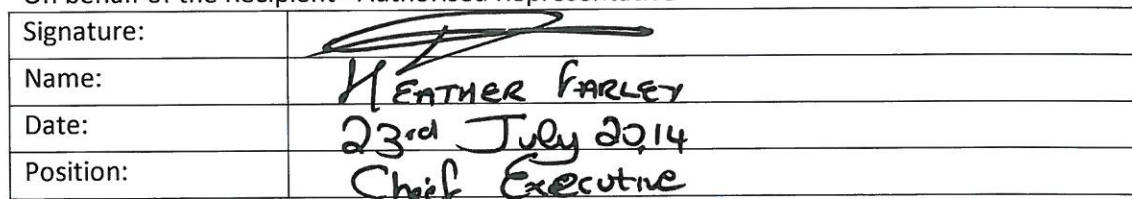 On behalf of the Recipient - Authorised Representative
Signature:
Name: HEATHER FARLEY
Date: 23rd July 2014
Position: Chief Executive